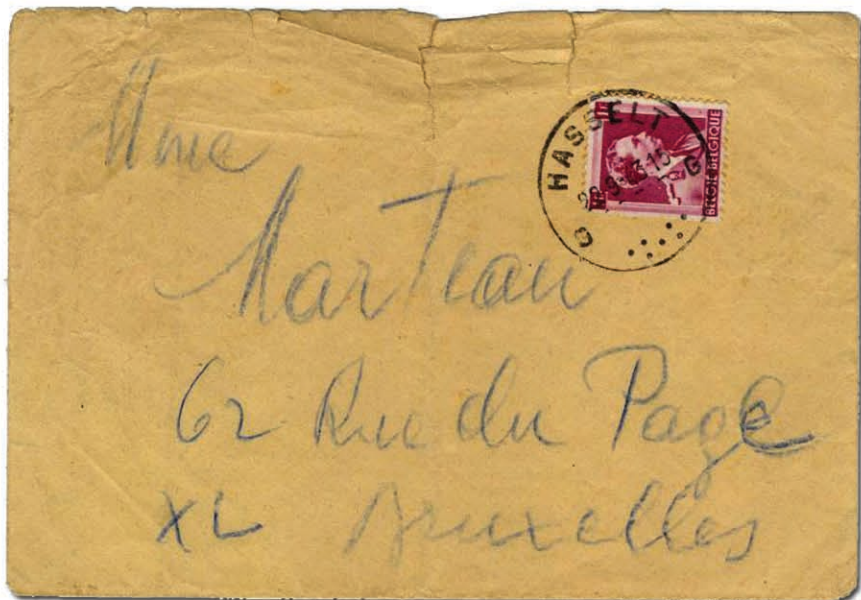 Mme
Marteau
62 Rue du Page
XL Bruxelles
HASSELT
G G
BELGIE BELGIQUE